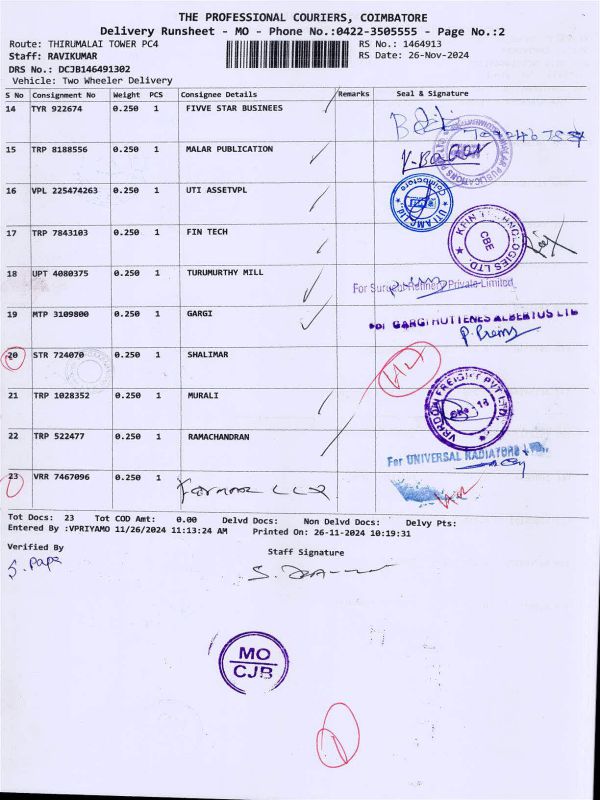 THE PROFESSIONAL COURIERS, COIMBATORE
Delivery Runsheet - MO - Phone No.:0422-3505555 - Page No.:2
Route: THIRUMALAI TOWER PC4
RS No.: 1464913
Staff: RAVIKUMAR
RS Date: 26-Nov-2024
DRS No.: DCJB146491302
Vehicle: Two Wheeler Delivery
S No Consignment No Weight PCS Consignee Details Remarks Seal & Signature
14 TYR 922674 0.250 1 FIVVE STAR BUSINEES
15 TRP 8188556 0.250 1 MALAR PUBLICATION
16 VPL 225474263 0.250 1 UTI ASSETVPL
Coimbatore
UTI AMC Ltd.
17 TRP 7843103 0.250 1 FIN TECH
KFIN TECHNOLOGIES LTD.
CBE
18 UPT 4080375 0.250 1 TURUMURTHY MILL
Private Limited
19 MTP 3109800 0.250 1 GARGI
For GARGI HUTTENES ALBERTUS LTD
P. Prems
20 STR 724070 0.250 1 SHALIMAR
21 TRP 1028352 0.250 1 MURALI
FREIGHT PVT LTD.
22 TRP 522477 0.250 1 RAMACHANDRAN
For UNIVERSAL RADIATORS LTD.,
23 VRR 7467096 0.250 1
Tot Docs: 23 Tot COD Amt: 0.00 Delvd Docs: Non Delvd Docs: Delvy Pts:
Entered By :VPRIYAMO 11/26/2024 11:13:24 AM Printed On: 26-11-2024 10:19:31
Verified By
Staff Signature
S. Papa
MO
CJB